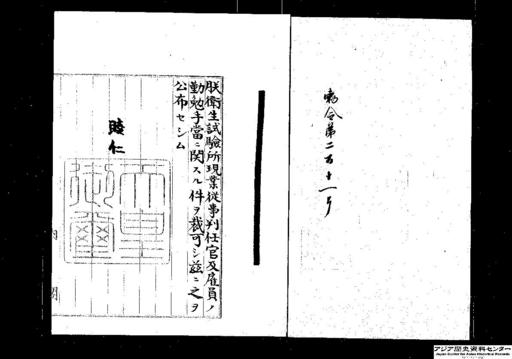 勅令第二百十一号
朕衛生試験所現業従事判任官及雇員ノ
勤勉手當ニ関スル件ヲ裁可シ茲ニ之ヲ
公布セシム
睦仁
天皇
御璽
内閣
アジア歴史資料センター
Japan Center for Asian Historical Records